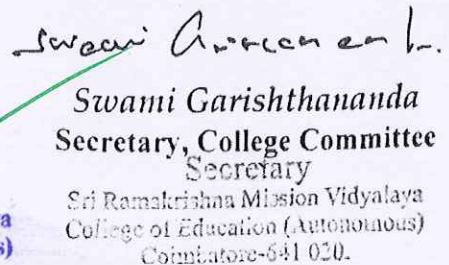 Swami
Swami Garishthananda
Secretary, College Committee
Secretary
Sri Ramakrishna Mission Vidyalaya
a College of Education (Autonomous)
s) Coimbatore-641 020.